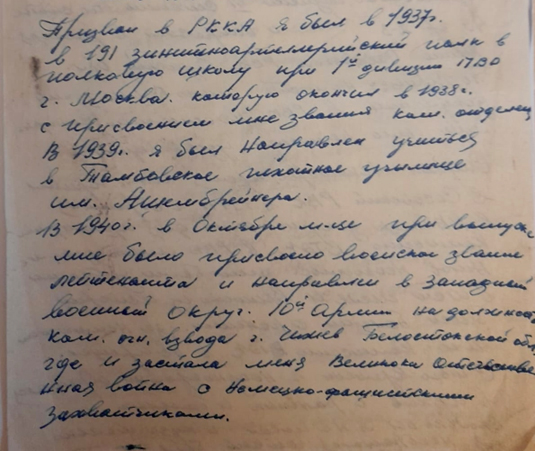 Призван в РККА я был в 1937г.
в 191 зинитноартиллирийский полк в
полковую школу при 1й дивизии ПВО
г. Москва. которую окончил в 1938г.
с присвоением мне звания ком. отделен
В 1939г. я был направлен учиться
в Тамбовское пехотное училище
им. Ашмбрейнера.
В 1940г. в Октябре м-це при выпуске
мне было присвоено воинское звание
лейтенанта и направлен в Западный
военный округ. 10й Армии на должность
ком. огн. взвода г. Чижев Белостокской обл.
где и застала меня Великая Отечествен
нная война с Немецко-фашистскими
захватчиками.